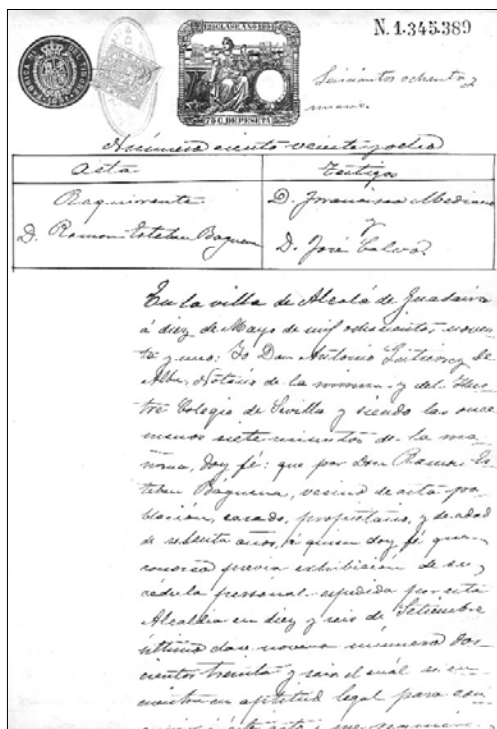 12ª CLASE AÑO 1891
75 C. DE PESETA
N. 1.345.389
Seiscientos ochenta y
nueve.
Número ciento veinte y ocho
Acta
Testigos
Requirente
D. Ramon Esteban Baguena
D. Francisco Mediano
y
D. José Calvo.
En la villa de Alcalá de Guadaira
á diez de Mayo de mil ochocientos noven-
ta y uno: Yo Don Antonio Gutierrez de
Alba, Notario de la misma y del Ilus-
tre Colegio de Sevilla y siendo las once
menos siete minutos de la ma-
ñana, doy fé: que por Don Ramon Es-
teban Baguena, vecino de esta po-
blación, casado, propietario, y de edad
de sesenta años, á quien doy fé que
conozco previa exhibición de su
cédula personal expedida por esta
Alcaldia en diez y seis de Setiembre
último clase novena número dos-
cientos treinta y seis el cuál se en-
cuentra en aptitud legal para con-